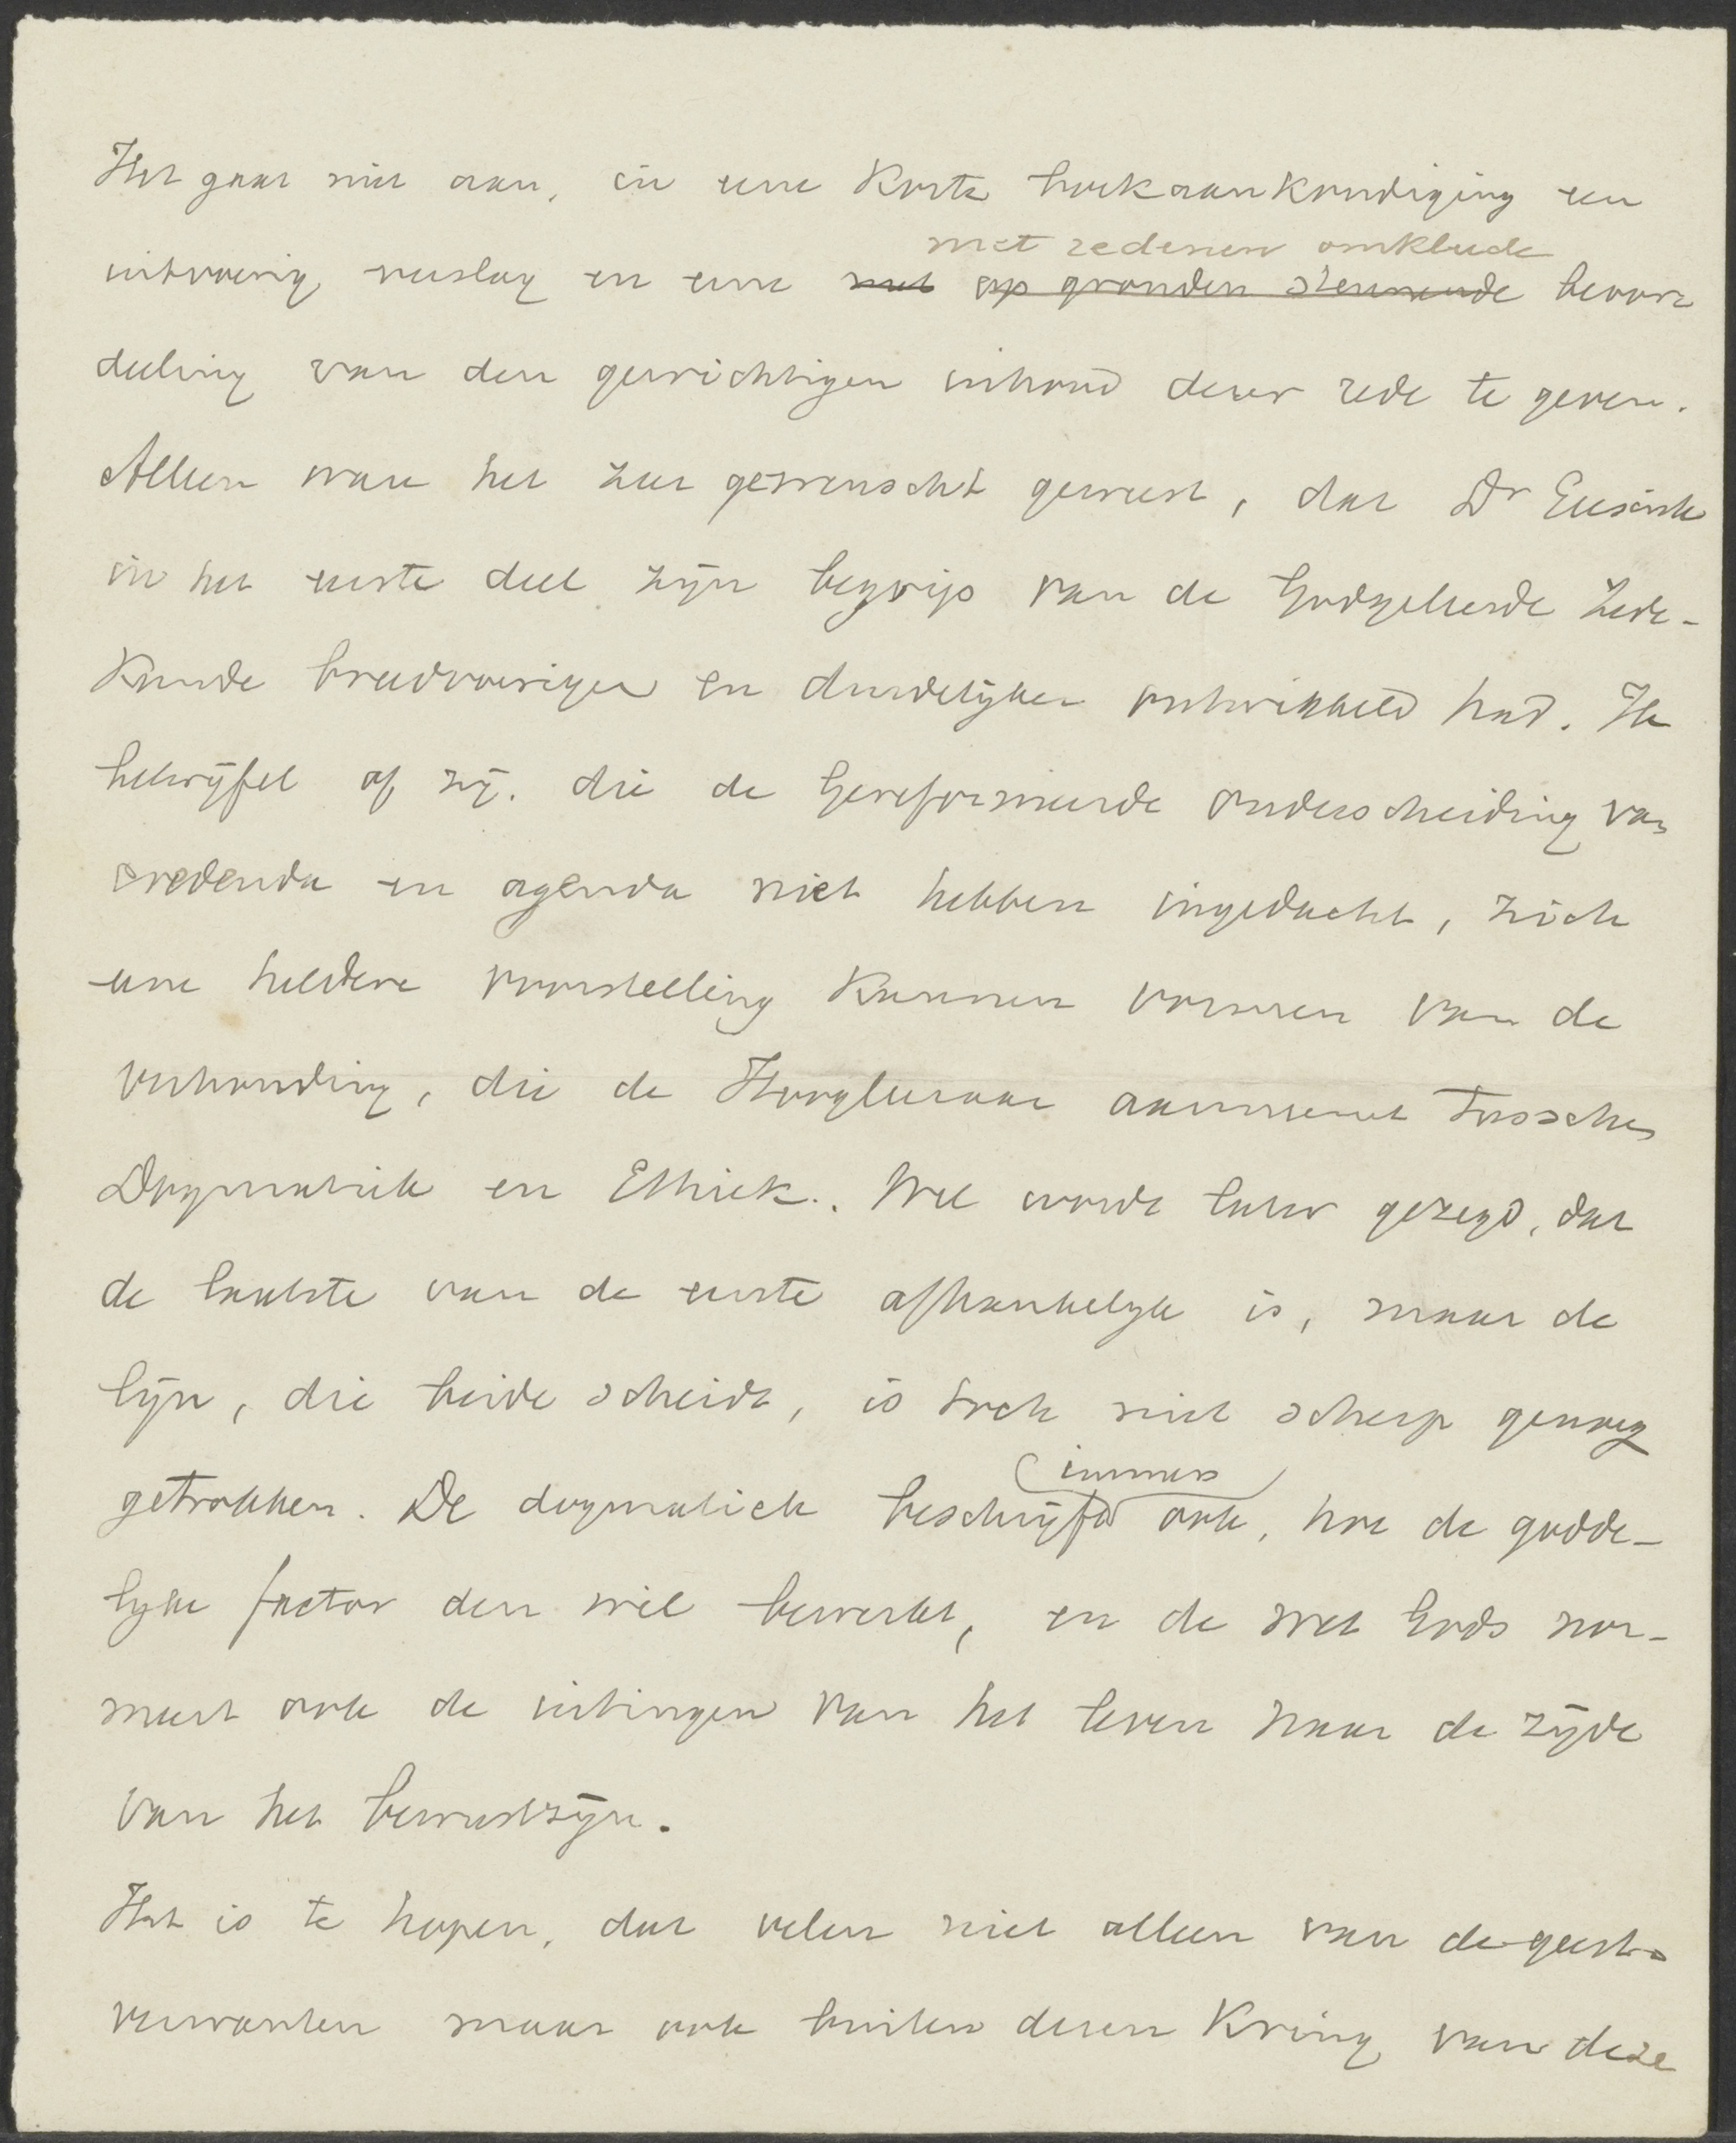 Het gaat niet aan, in eene korte boekaankondiging een
met redenen omkleede
uitvoerig verslag en eene met op gronden steunende beoor
deeling van den gewichtigen inhoud dezer rede te geven.
Alleen ware het zeer gewenscht geweest, dat Dr Geesink
in het eerste deel zijn begrip van de Godgeleerde Zede-
kunde breedvoeriger en duidelijker ontwikkeld had. Ik
betwijfel of zij, die de Gereformeerde onderscheiding van
credenda en agenda niet hebben ingedacht, zich
eene heldere voorstelling kunnen vormen van de
verhouding, die de Hoogleeraar aanneemt tusschen
Dogmatiek en Ethiek. Wel wordt later gezegd, dat
de laatste van de eerste afhankelijk is, maar de
lijn, die beide scheidt, is toch niet scherp genoeg
immers
getrokken. De dogmatiek beschrijft ook, hoe de godde-
lijke factor den wil bewerkt, en de wet Gods nor-
meert ook de uitingen van het leven naar de zijde
van het bewustzijn.
Het is te hopen, dat velen niet alleen van de geest-
verwanten maar ook buiten dezen kring van deze